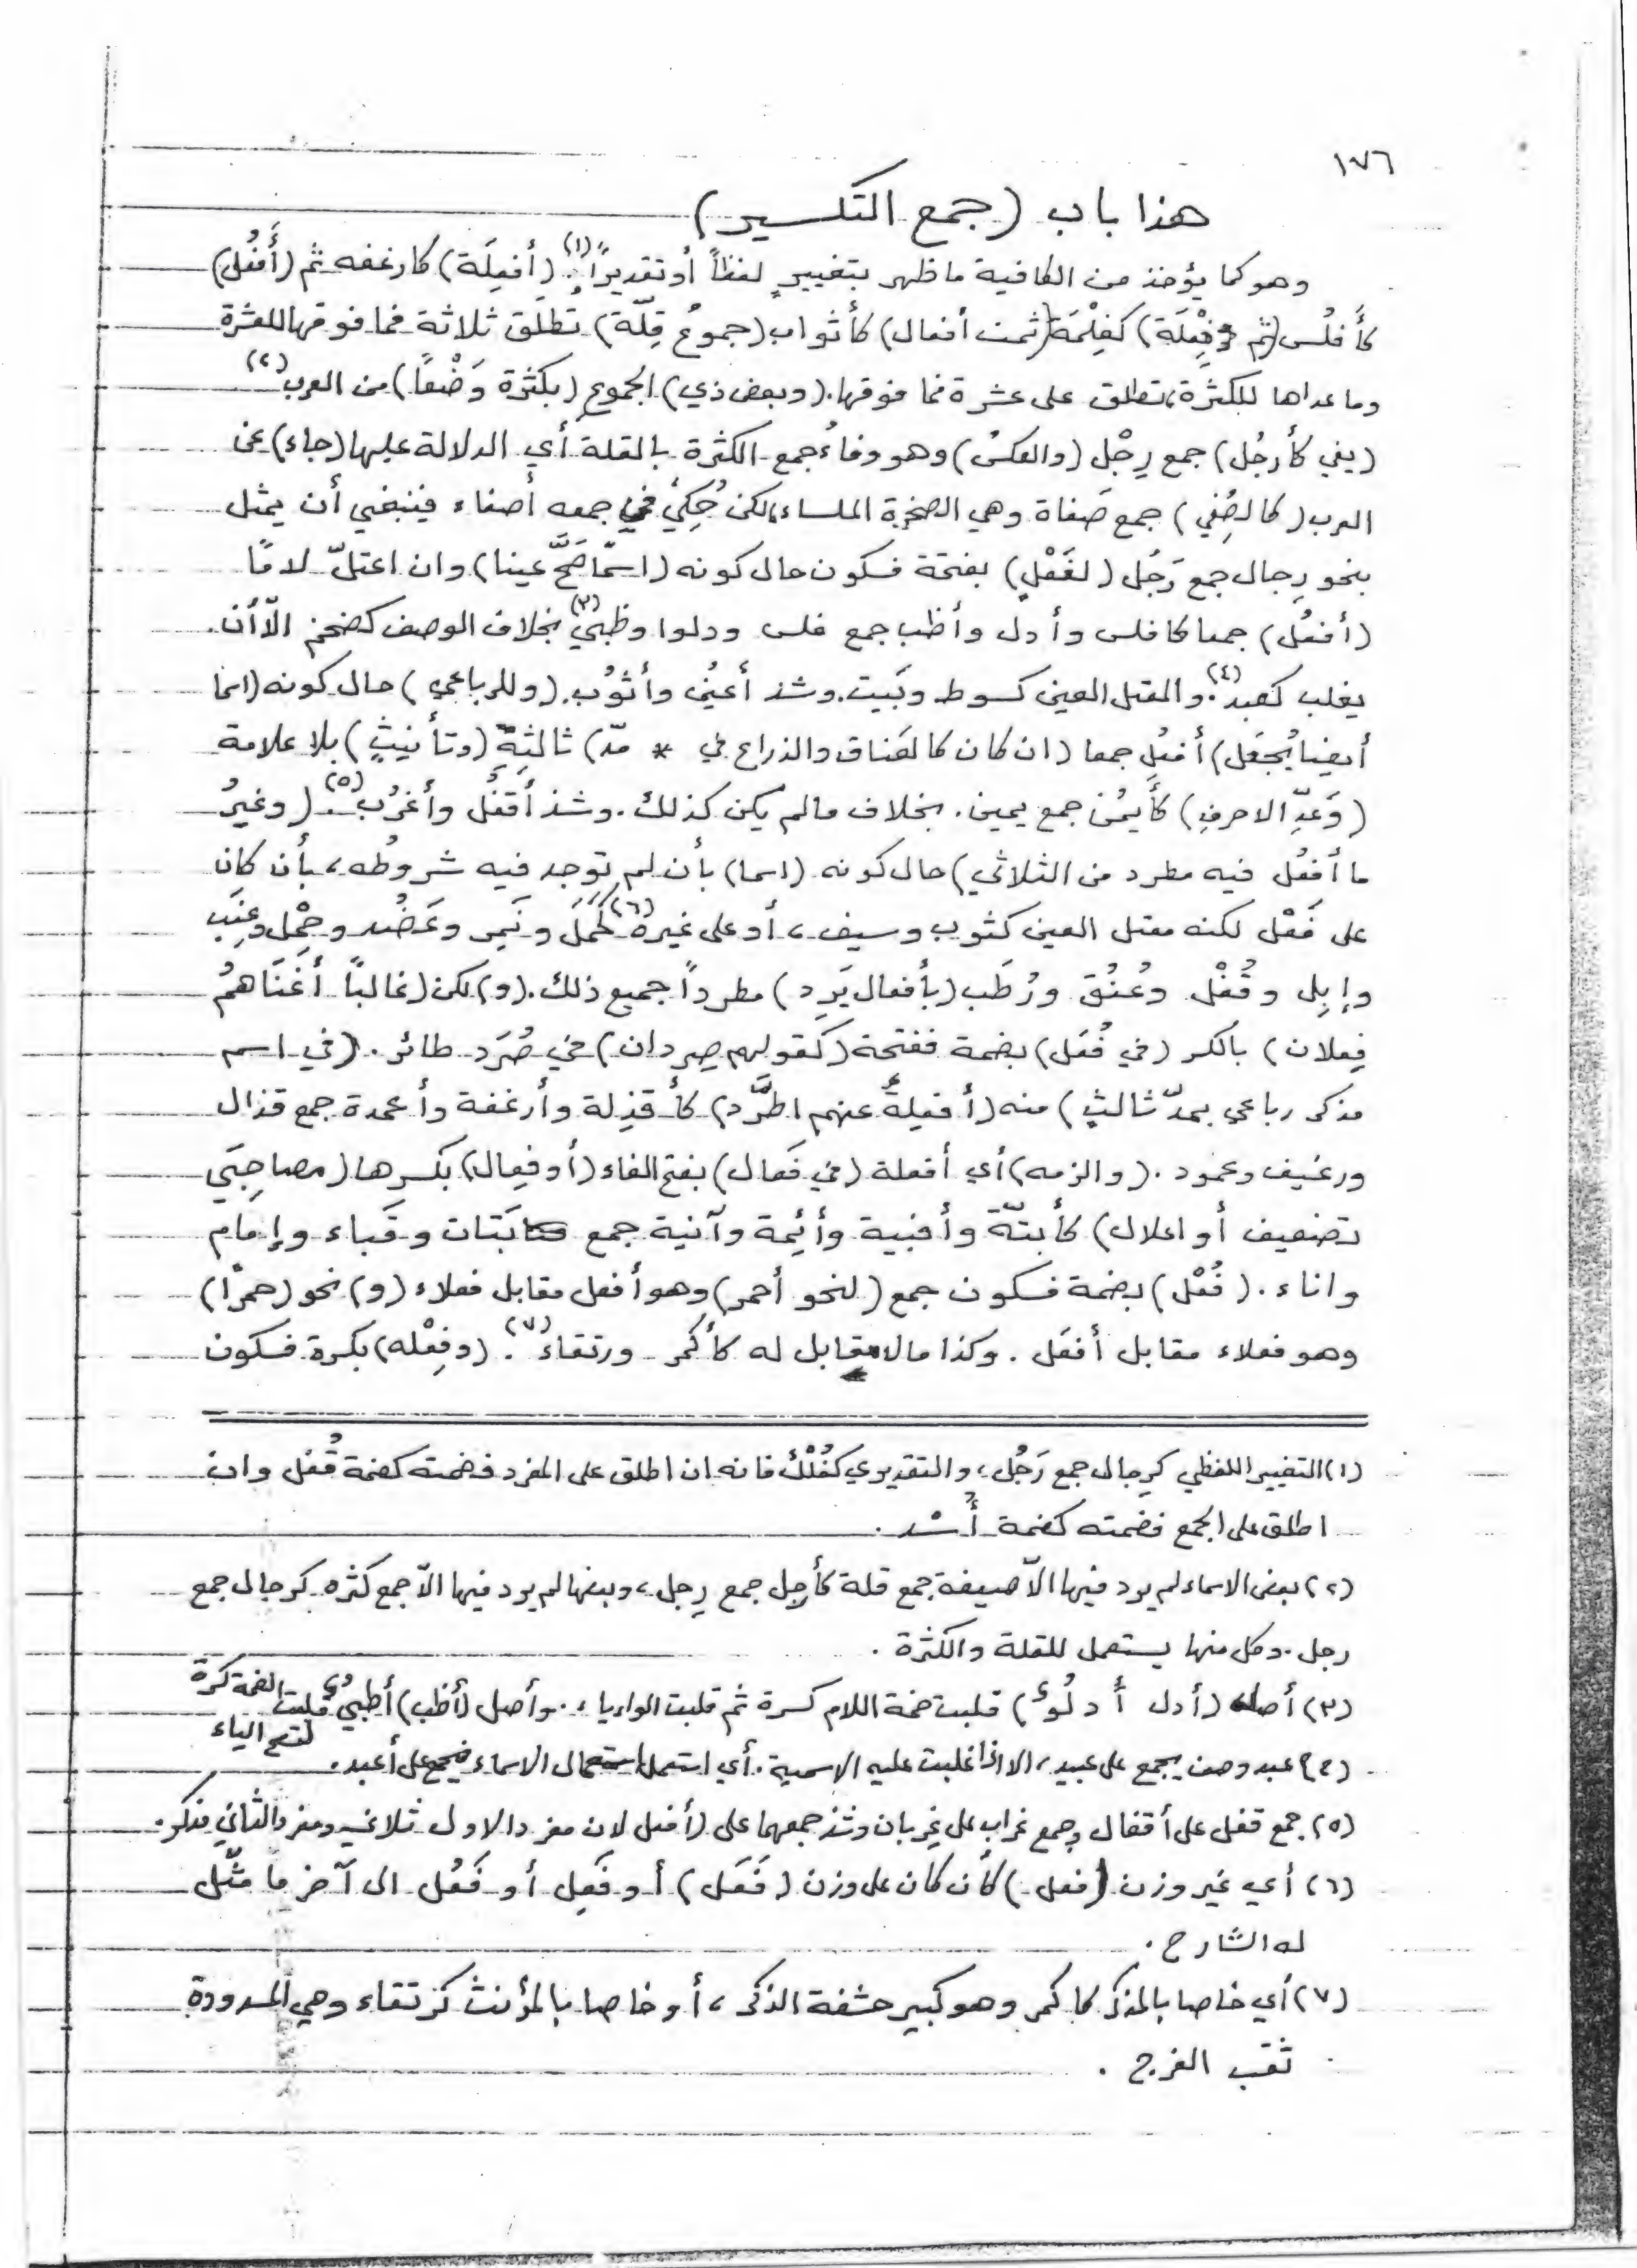 ١٧٦
هذا باب (جمع التكسير)
وهو كما يؤخذ من الكافية ما ظهر بتغييرٍ لفظاً أو تقديراً (١). (أفعِلَة) كارغفه ثم (أَفعُل)
كأَفلُس (ثم فِعْلَة) كغِلْمَة (ثمت أفعال) كأثواب (جموعُ قِلّة) تطلق ثلاثة فما فوقها للعشرة
وما عداها للكثرة، تطلق على عشرة فما فوقها. (وبعض ذي) الجموع (بكثرة وَضْعاً) من العرب (٢)
(يفي كأَرجُل) جمع رِجْل (والعكسُ) وهو وفاءُ جمع الكثرة بالقلة أي الدلالة عليها (جاء) عن
العرب (كالصُفِي) جمع صَفاة وهي الصخرة الملساء، لكن حُكِيَ في جمعه أصفاء فينبغي أن يمثل
بنحو رِجال جمع رَجُل (لفَعْلٍ) بفتحة فسكون حال كونه (اسمًا صَحَّ عينا) وان اعتلّ لامًا
(أفعُل) جمعا كافلس وأدل وأظب جمع فلس ودلو وظبي (٣) بخلاف الوصف كضخم الّا أن
يغلب كعبد (٤). والمعتل العين كسوط وبَيت. وشذ أعيُن وأثوُب. (وللرباعي) حال كونه (اسما
أيضا يُجعَل) أفعُل جمعا (ان كان كالعَناق والذراع في * مدّ) ثالثةِ (وتأنيثٍ) بلا علامة
(وَعَدِّ الاحرفِ) كأَيمُن جمع يمين. بخلاف مالم يكن كذلك. وشذ أَقفُل وأَغرُب (٥). (وغيرُ
ما أَفعُل فيه مطرد من الثلاثي) حال كونه (اسما) بأن لم توجد فيه شروطُه، بأن كان
على فَعْل لكنه معتل العين كثوب وسيف، أو على غيره (٦) كجَمَل ونَمِر وعَضُد وحِمْل وعِنَب
وإبِل وقُفْل وعُنُق ورُطَب (بأفعال يَرِد) مطرداً جميع ذلك. (و) لكن (غالباً أغنَاهمُ
فِعلان) بالكسر (في فُعَل) بضمة ففتحة (كقولهم صِردان) في صُرَد طائر. (في اسم
مذكر رباعي بمدّ ثالثٍ) منه (أفعِلةُ عنهم اطَّرَد) كأقذِلة وأرغفة وأعمدة جمع قذال
ورغيف وعمود. (والزمه) أي أفعلة (في فَعال) بفتح الفاء (أو فِعال) بكسرها (مصاحِبَي
تضعيف أو اعلال) كأبتّة وأقبية وأئِمة وآنية جمع بَتات وقَباء وإمام
واناء. (فُعْل) بضمة فسكون جمع (لنحو أحمر) وهو أفعل مقابل فعلاء (و) نحو (حمرا)
وهو فعلاء مقابل أفعَل. وكذا مالا مقابل له كأكمر ورتقاء (٧). (وفِعْله) بكسرة فسكون
(١) التغيير اللفظي كرِجال جمع رَجُل، والتقديري كفُلْك فانه ان اطلق على المفرد فضمته كضمة قُفل وان
اطلق على الجمع فضمته كضمة أُسْد.
(٢) بعض الاسماء لم يرد فيها الّا صيغة جمع قلة كأرجل جمع رِجل، وبعضها لم يرد فيها الّا جمع كثره كرجال جمع
رجل. وكل منها يستعمل للقلة والكثرة.
(٣) أصل (أدل أدلُوٌ) قلبت ضمة اللام كسرة ثم قلبت الواو ياء. وأصل (أظب) أظبُيٌ قلبت الضمة كسرة
لتصح الياء
(٤) عبد وصف يجمع على عبيد، الا اذا غلبت عليه الاسمية. أي استعمل استعمال الاسماء فيجمع على أعبد.
(٥) جمع قفل على أقفال وجمع غراب على غِربان وشذ جمعهما على (أفعل) لان مفرد الاول ثلاثي ومفرد الثاني مذكر.
(٦) أي غير وزن (فعل) كأن كان على وزن (فَعَل) أو فَعِل أو فَعُل الى آخر ما مثّل
له الشارح.
(٧) أي خاصا بالمذكر كاكمر وهو كبير حشفة الذكر، أو خاصا بالمؤنث كرتقاء وهي المسدودة
ثقب الفرج.